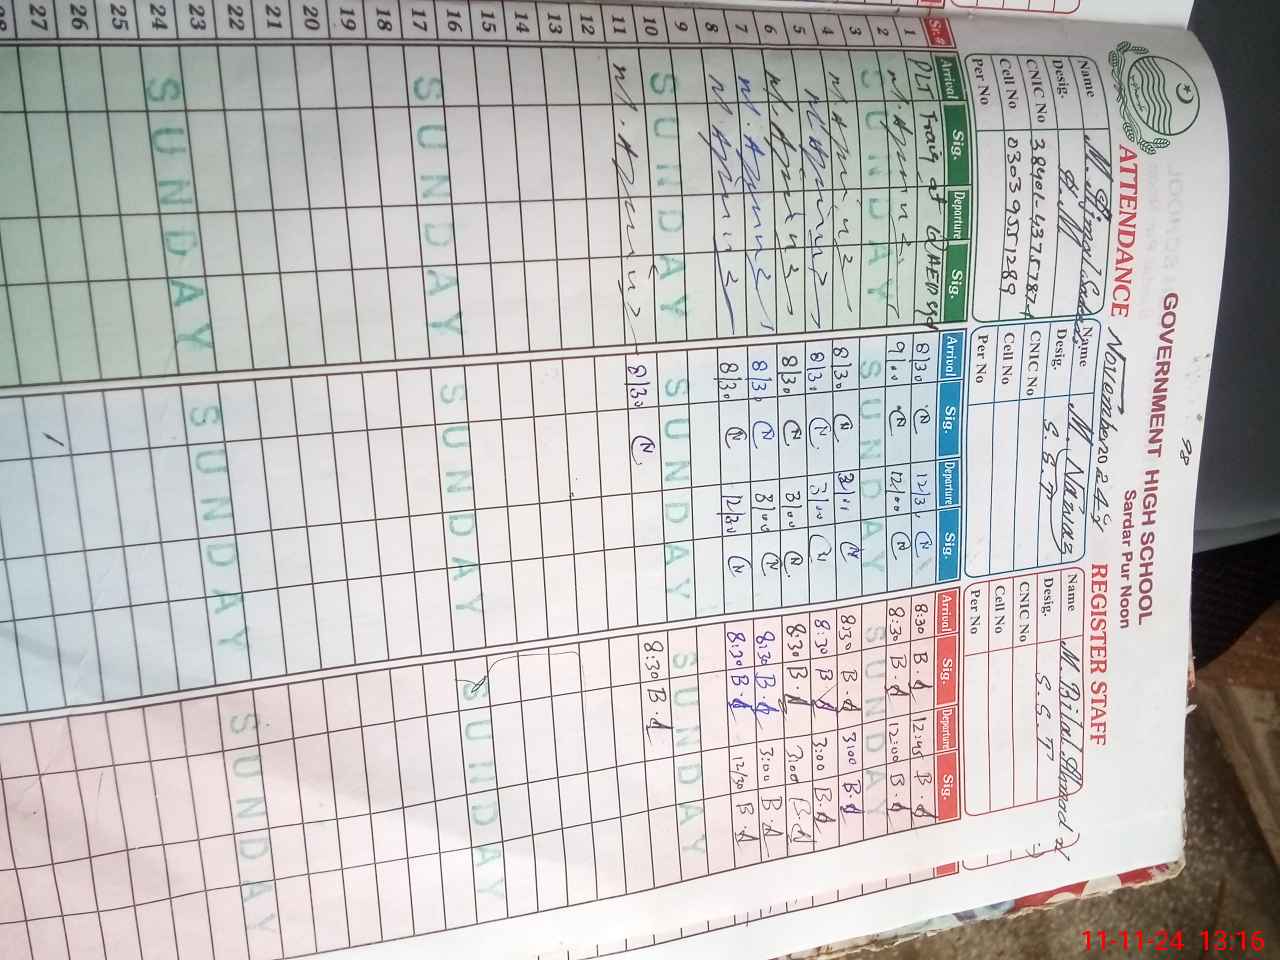 98
GOVERNMENT HIGH SCHOOL
Sardar Pur Noon
ATTENDANCE November 2024 REGISTER STAFF
Name M. Ajmal
Desig.
CNIC No 38401-4375787-1
Cell No 0303 9551289
Per No
Name M. Nawaz
Desig. S.S.T
CNIC No
Cell No
Per No
Name M. Bilal Ahmed
Desig. S.S.T
CNIC No
Cell No
Per No
Sr.# Arrival Sig. Departure Sig. Arrival Sig. Departure Sig. Arrival Sig. Departure Sig.
1 PLT at 8/30 N 12/3 N 8:30 B.A 12:45 B.A
2 9/00 N 12/00 N 8:30 B.A 12:00 B.A
3 SUNDAY SUNDAY SUNDAY
4 8/30 N 3/00 N 8:30 B.A 3:00 B.A
5 8/30 N 3/00 N 8:30 B.A 3:00 B.A
6 8/30 N 3/00 N 8:30 B.A 3:00 B.A
7 8/30 N 3/00 N 8:30 B.A 3:00 B.A
8 8/30 N 12/30 N 8:30 B.A 12/30 B.A
9
10 SUNDAY SUNDAY SUNDAY
11 8/30 N 8:30 B.A
12
13
14
15
16
17 SUNDAY SUNDAY SUNDAY
18
19
20
21
22
23
24 SUNDAY SUNDAY SUNDAY
25
26
27
11-11-24 13:16